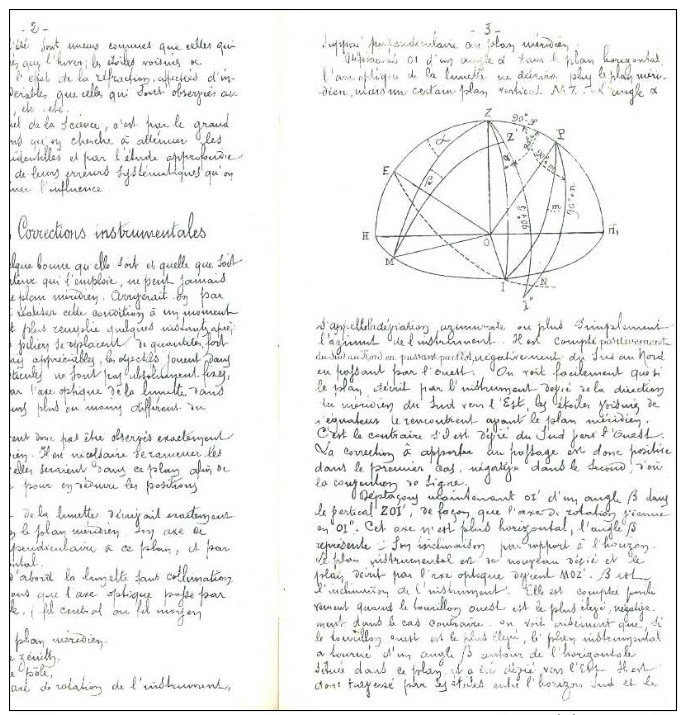 - 2 -
l'été sont mieux connues que celles qui
que l'hiver; les étoiles voisines
l'effet de la réfraction, affectées d'in-
que celles qui sont observées au
etc... etc.
de la Science, c'est par le grand
qu'on cherche à atténuer les
et par l'étude approfondie
de leurs erreurs systématiques qu'on
l'influence.
Corrections instrumentales
bonne qu'elle soit et quelle que soit
qui l'emploie, ne peut jamais
plan méridien. Arriverait-on par
réaliser cette condition à un moment
plus remplie quelques instants après;
piliers se déplacent de quantités fort
appréciables, les objectifs jouent dans
ne sont pas absolument fixes,
l'axe optique de la lunette dans
plus ou moins différent du
donc pas être observés exactement
Il est nécessaire de ramener les
elles seraient dans ce plan afin de
pour en déduire les positions
de la lunette décrirait exactement
le plan méridien. Son axe de
perpendiculaire à ce plan, et par
d'abord la lunette sans collimation,
que l'axe optique passe par
(fil central ou fil moyen
plan méridien.
zénith,
pôle,
axe de rotation de l'instrument,
- 3 -
supposé perpendiculaire au plan méridien.
Déplaçons OI d'un angle α dans le plan horizontal,
l'axe optique de la lunette ne décrira plus le plan méri-
-dien, mais un certain plan vertical MZ. L'angle α
Z
90°-φ
P
Z'
α
E
β
m
90°+n
90°+β
H
O
H₁
M
I
N
I"
s'appelle déviation azimutale ou plus simplement
l'azimut de l'instrument. Il est compté positivement
du Sud au Nord en passant par l'Est, négativement du Sud au Nord
en passant par l'Ouest. On voit facilement que si
le plan décrit par l'instrument dévie de la direction
du méridien du Sud vers l'Est, les étoiles voisines de
l'équateur le rencontrent avant le plan méridien.
C'est le contraire s'il est dévié du Sud vers l'Ouest.
La correction à apporter au passage est donc positive
dans le premier cas, négative dans le second, d'où
la convention de signe.
Déplaçons maintenant OI d'un angle β dans
le vertical ZOI, de façon que l'axe de rotation vienne
en OI". Cet axe n'est plus horizontal, l'angle β
représente son inclinaison par rapport à l'horizon.
Le plan instrumental est de nouveau dévié et le
plan décrit par l'axe optique devient MOZ'. β est
l'inclinaison de l'instrument. Elle est comptée positi-
vement quand le tourillon ouest est le plus élevé, négative-
ment dans le cas contraire. On voit aisément que, si
le tourillon ouest est le plus élevé, le plan instrumental
a tourné d'un angle β autour de l'horizontale
située dans ce plan, il a été dévié vers l'Est. Il est
donc traversé par les étoiles entre l'horizon Sud et le